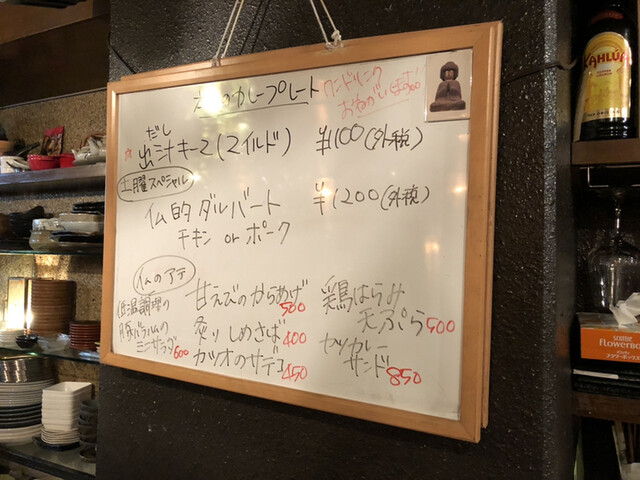 のカレープレート
ワンドリンク
おねがいします!
だし
☆ 出汁キーマ(マイルド) ¥1100(外税)
土曜スペシャル
仏的ダルバート ¥1200(外税)
チキン or ポーク
仏のアテ
低温調理の
豚バラハムの
ミニサラダ 600
甘えびのからあげ 500
炙りしめさば 400
カツオのサデコ 450
鶏はらみ
天ぷら 500
カツカレー
サンド 850
KAHLÚA